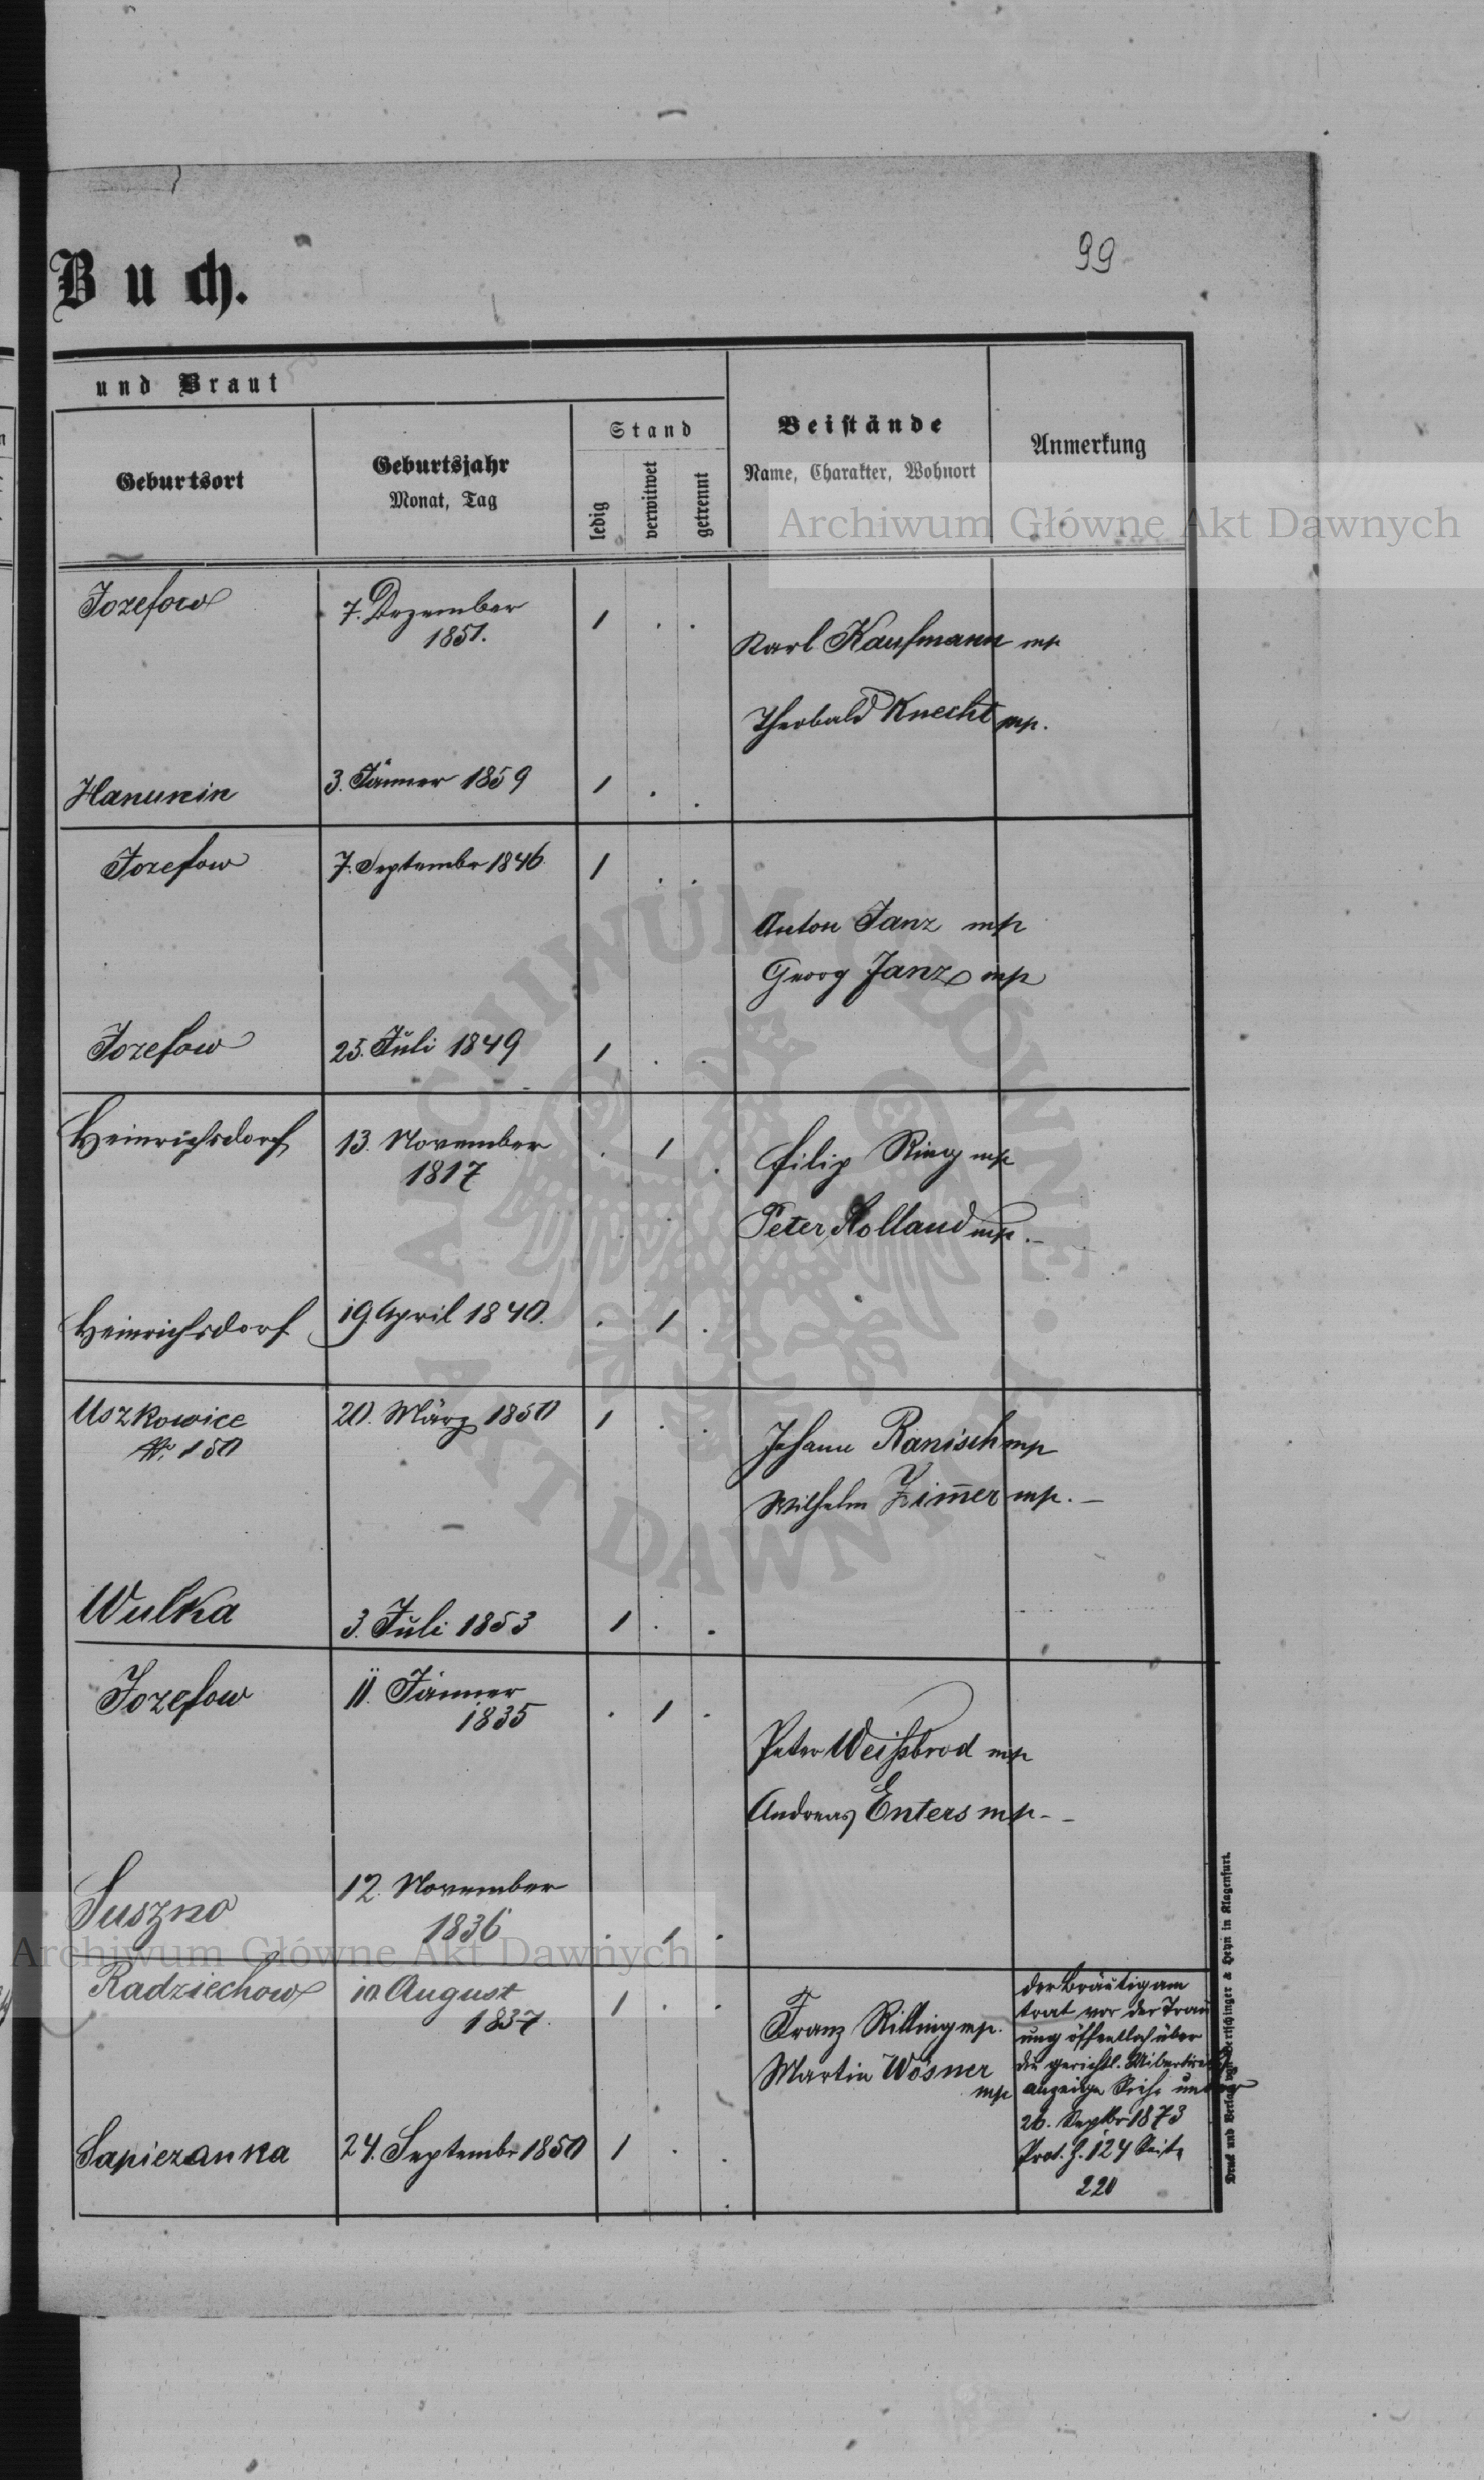 99
Buch.
und Braut
Geburtsort
Geburtsjahr
Monat, Tag
Stand
ledig
verwitwet
getrennt
Beistände
Name, Charakter, Wohnort
Anmerkung
Archiwum Główne Akt Dawnych
Jozefow
7. Dezember
1851.
1 . .
Karl Kaufmann mp
Theobald Knecht mp.
Hanunin
3. Jänner 1859
1 . .
Jozefow
7. Septembr 1846.
1 . .
Anton Janz mp
Georg Janz mp
Jozefow
25. Juli 1849
1 . .
Heinrichsdorf
13. November
1817
. 1 .
Filip Ring mp
Peter Holland mp. -
Heinrichsdorf
19 April 1840.
. 1 .
Uszkowice
Nr. 150
20. März 1850
1 . .
Johann Ranisch mp
Wilhelm Zim̄er mp. -
Wulka
3. Juli 1853
1 . .
Jozefow
11. Jänner
1835
. 1 .
Peter Weißbrod mp
Andreas Enters mp - -
Suszno
12. November
1836
. 1 .
Archiwum Główne Akt Dawnych
Radziechow
10 August
1837.
1 . .
Franz Rilling mp.
Martin Wösner
mp
der Bräutigam
trat vor der Trau
ung öffentlich über
die gerichtl.
anzeige
26. Septbr 1873
Prot. Z. 124 Seite
220
Sapiezanka
24. Septembr 1850
1 . .
Druck und Verlag von Bertschinger & Heyn in Klagenfurt.
ARCHIWUM GŁÓWNE AKT DAWNYCH